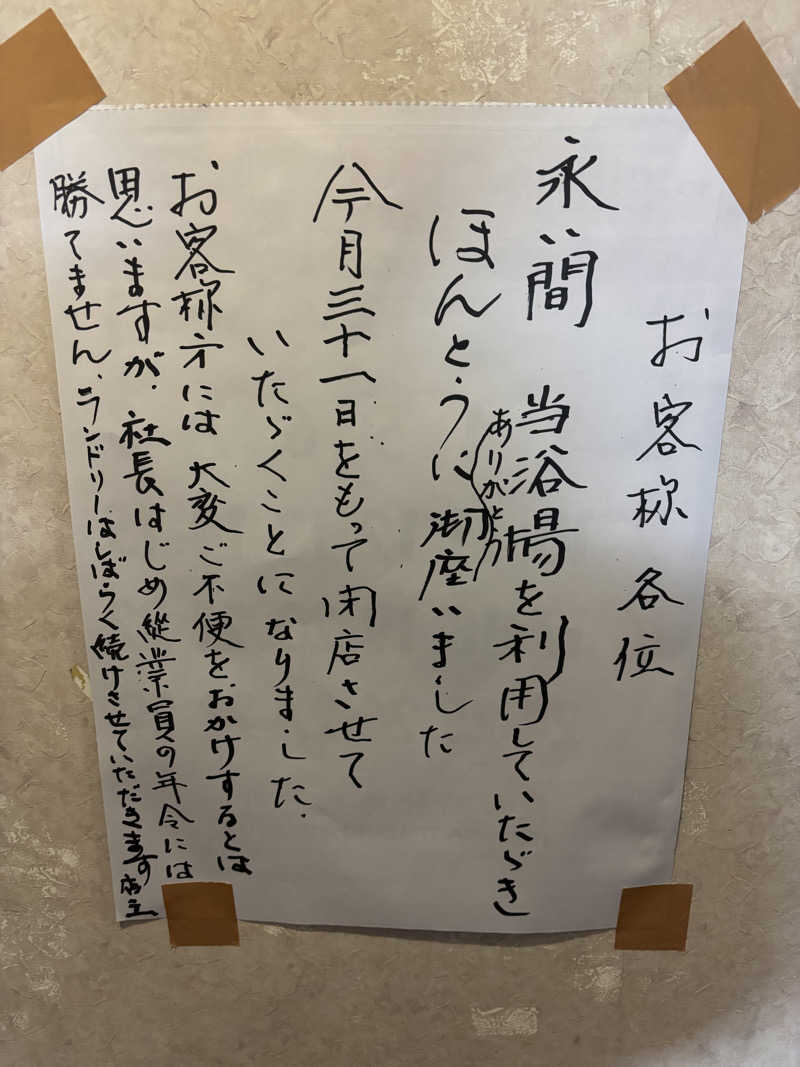 お客様各位
永い間 当浴場を利用していたゞき
ほんとうにありがとう御座いました
今月三十一日をもって閉店させて
いたゞくことになりました.
お客様方には大変ご不便をおかけするとは
思いますが、社長はじめ縦業員の年令には
勝てません、ランドリーはしばらく続けさせていただきます 店主